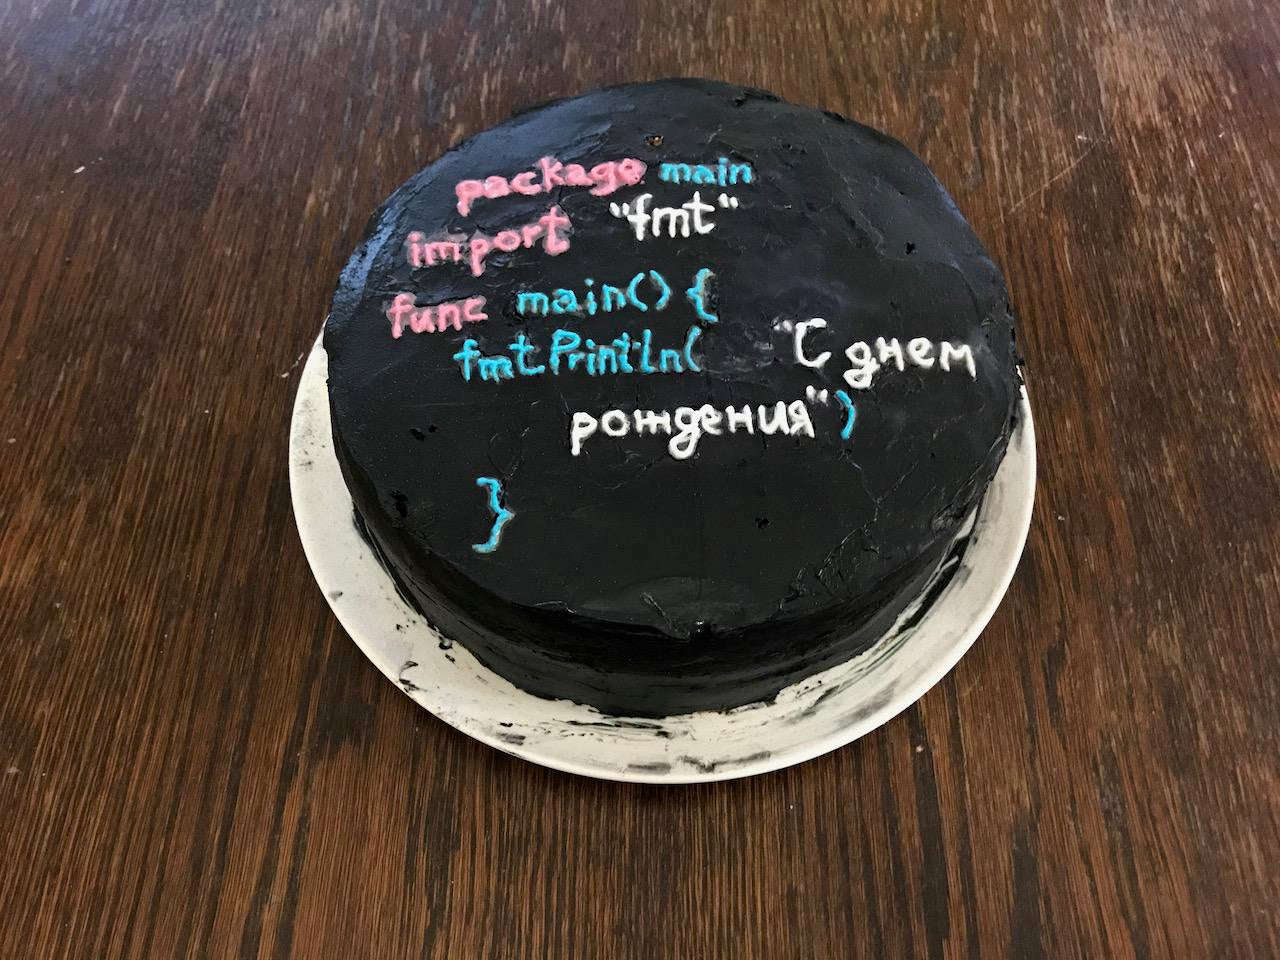 package main
import "fmt"
func main() {
fmt.Println( "С днем
рождения")
}